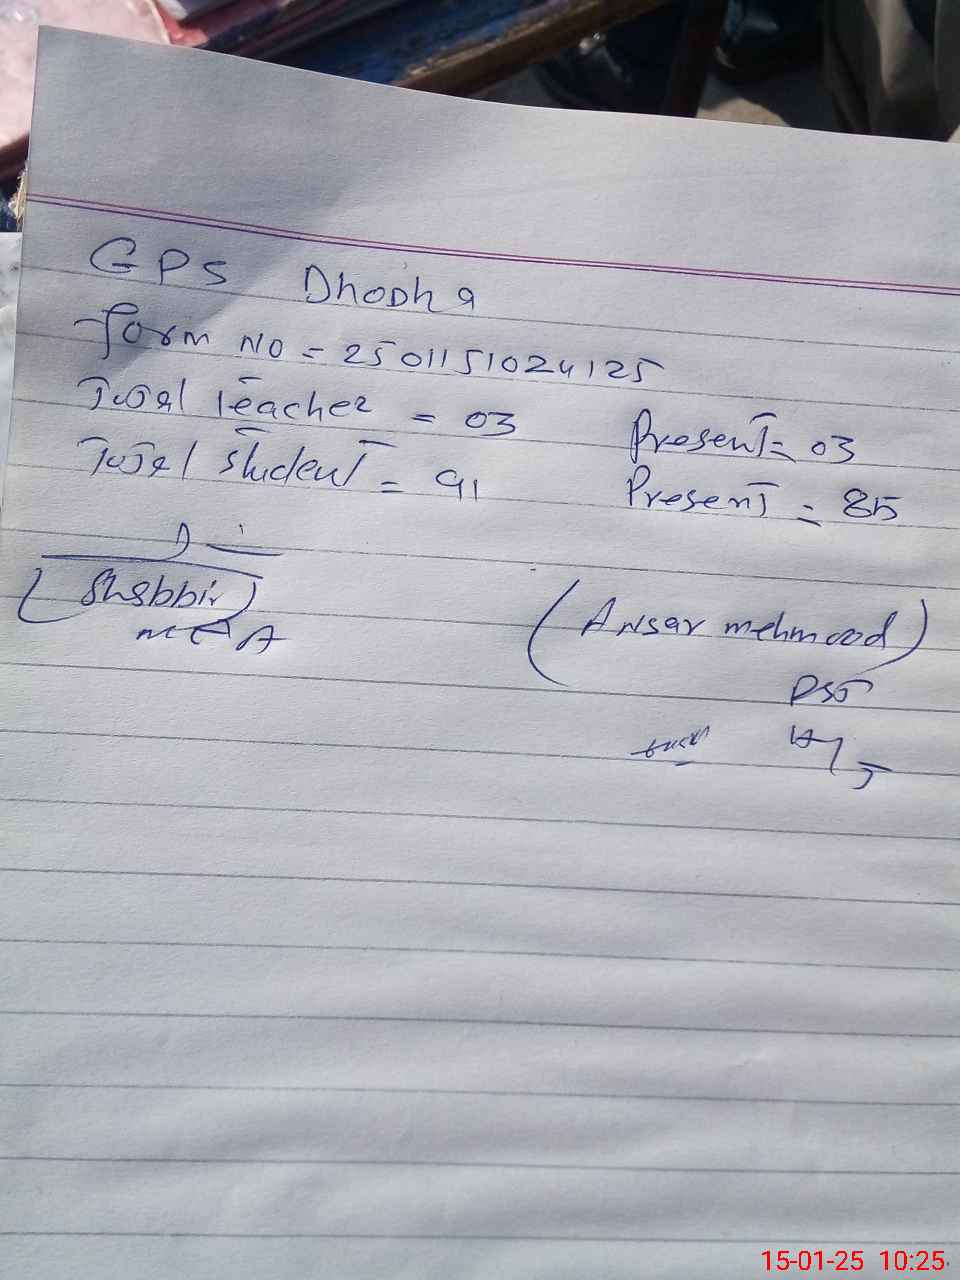 GPS Dhodha
form no = 2501151024125
Total Teacher = 03 Present = 03
Total student = 91 Present = 85
(Shabbir)
MEA
(Ansar mehmood)
PST
15-01-25 10:25